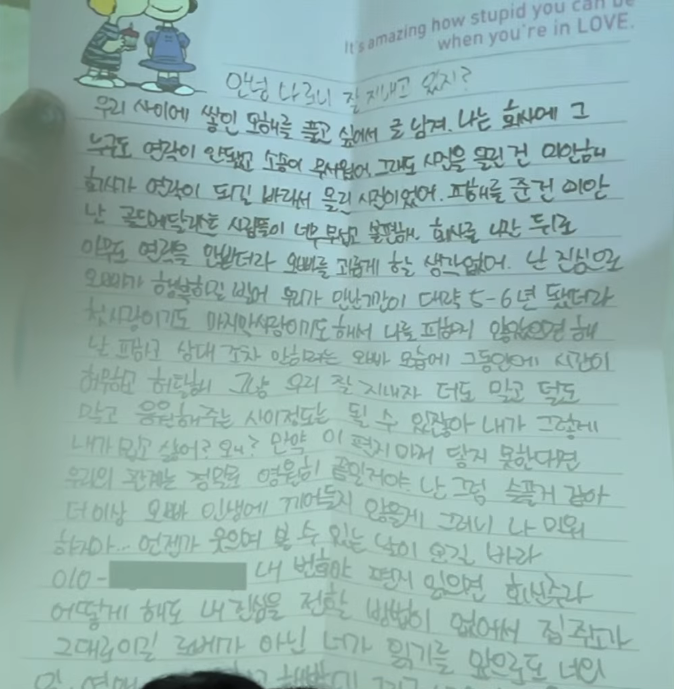 It's amazing how stupid you can be
when you're in LOVE.
안녕 나르니 잘 지내고 있지?
우리 사이에 쌓인 오해를 풀고 싶어서 글 남겨. 나는 회사에 그
누구도 연락이 안됐고 소송이 무서웠어 그래도 사진을 올린 건 미안해
회사가 연락이 되길 바라서 올린 사진이었어. 피해를 준건 미안
난 골드메달리스트 사람들이 너무 무섭고 불편해. 회사를 나간 뒤로
아무도 연락을 안받더라 오빠를 괴롭게 할 생각없어. 난 진심으로
오빠가 행복하길 빌어 우리가 만난기간이 대략 5-6년 됐더라
첫사랑이기도 마지막사랑이기도 해서 나를 피하지 않았으면 해
날 피하고 상대 조차 안하려는 오빠 모습에 그동안에 시간이
허무하고 허탈해 그냥 우리 잘 지내자 더도 말고 덜도
말고 응원해주는 사이정도는 될 수 있잖아 내가 그렇게
내가 밉고 싫어? 왜? 만약 이 편지마저 닿지 못한다면
우리의 관계는 정말로 영원히 끝일거야 난 그럼 슬플거 같아
더이상 오빠 인생에 끼어들지 않을게 그러니 나 미워
하지마... 언젠가 웃으며 볼 수 있는 날이 오길 바라
010- 내 번호야 편지 읽으면 회신주라
어떻게 해도 내 진심을 전할 방법이 없어서 집주소가
그대로이길 로베가 아닌 너가 읽기를 앞으로도 너의